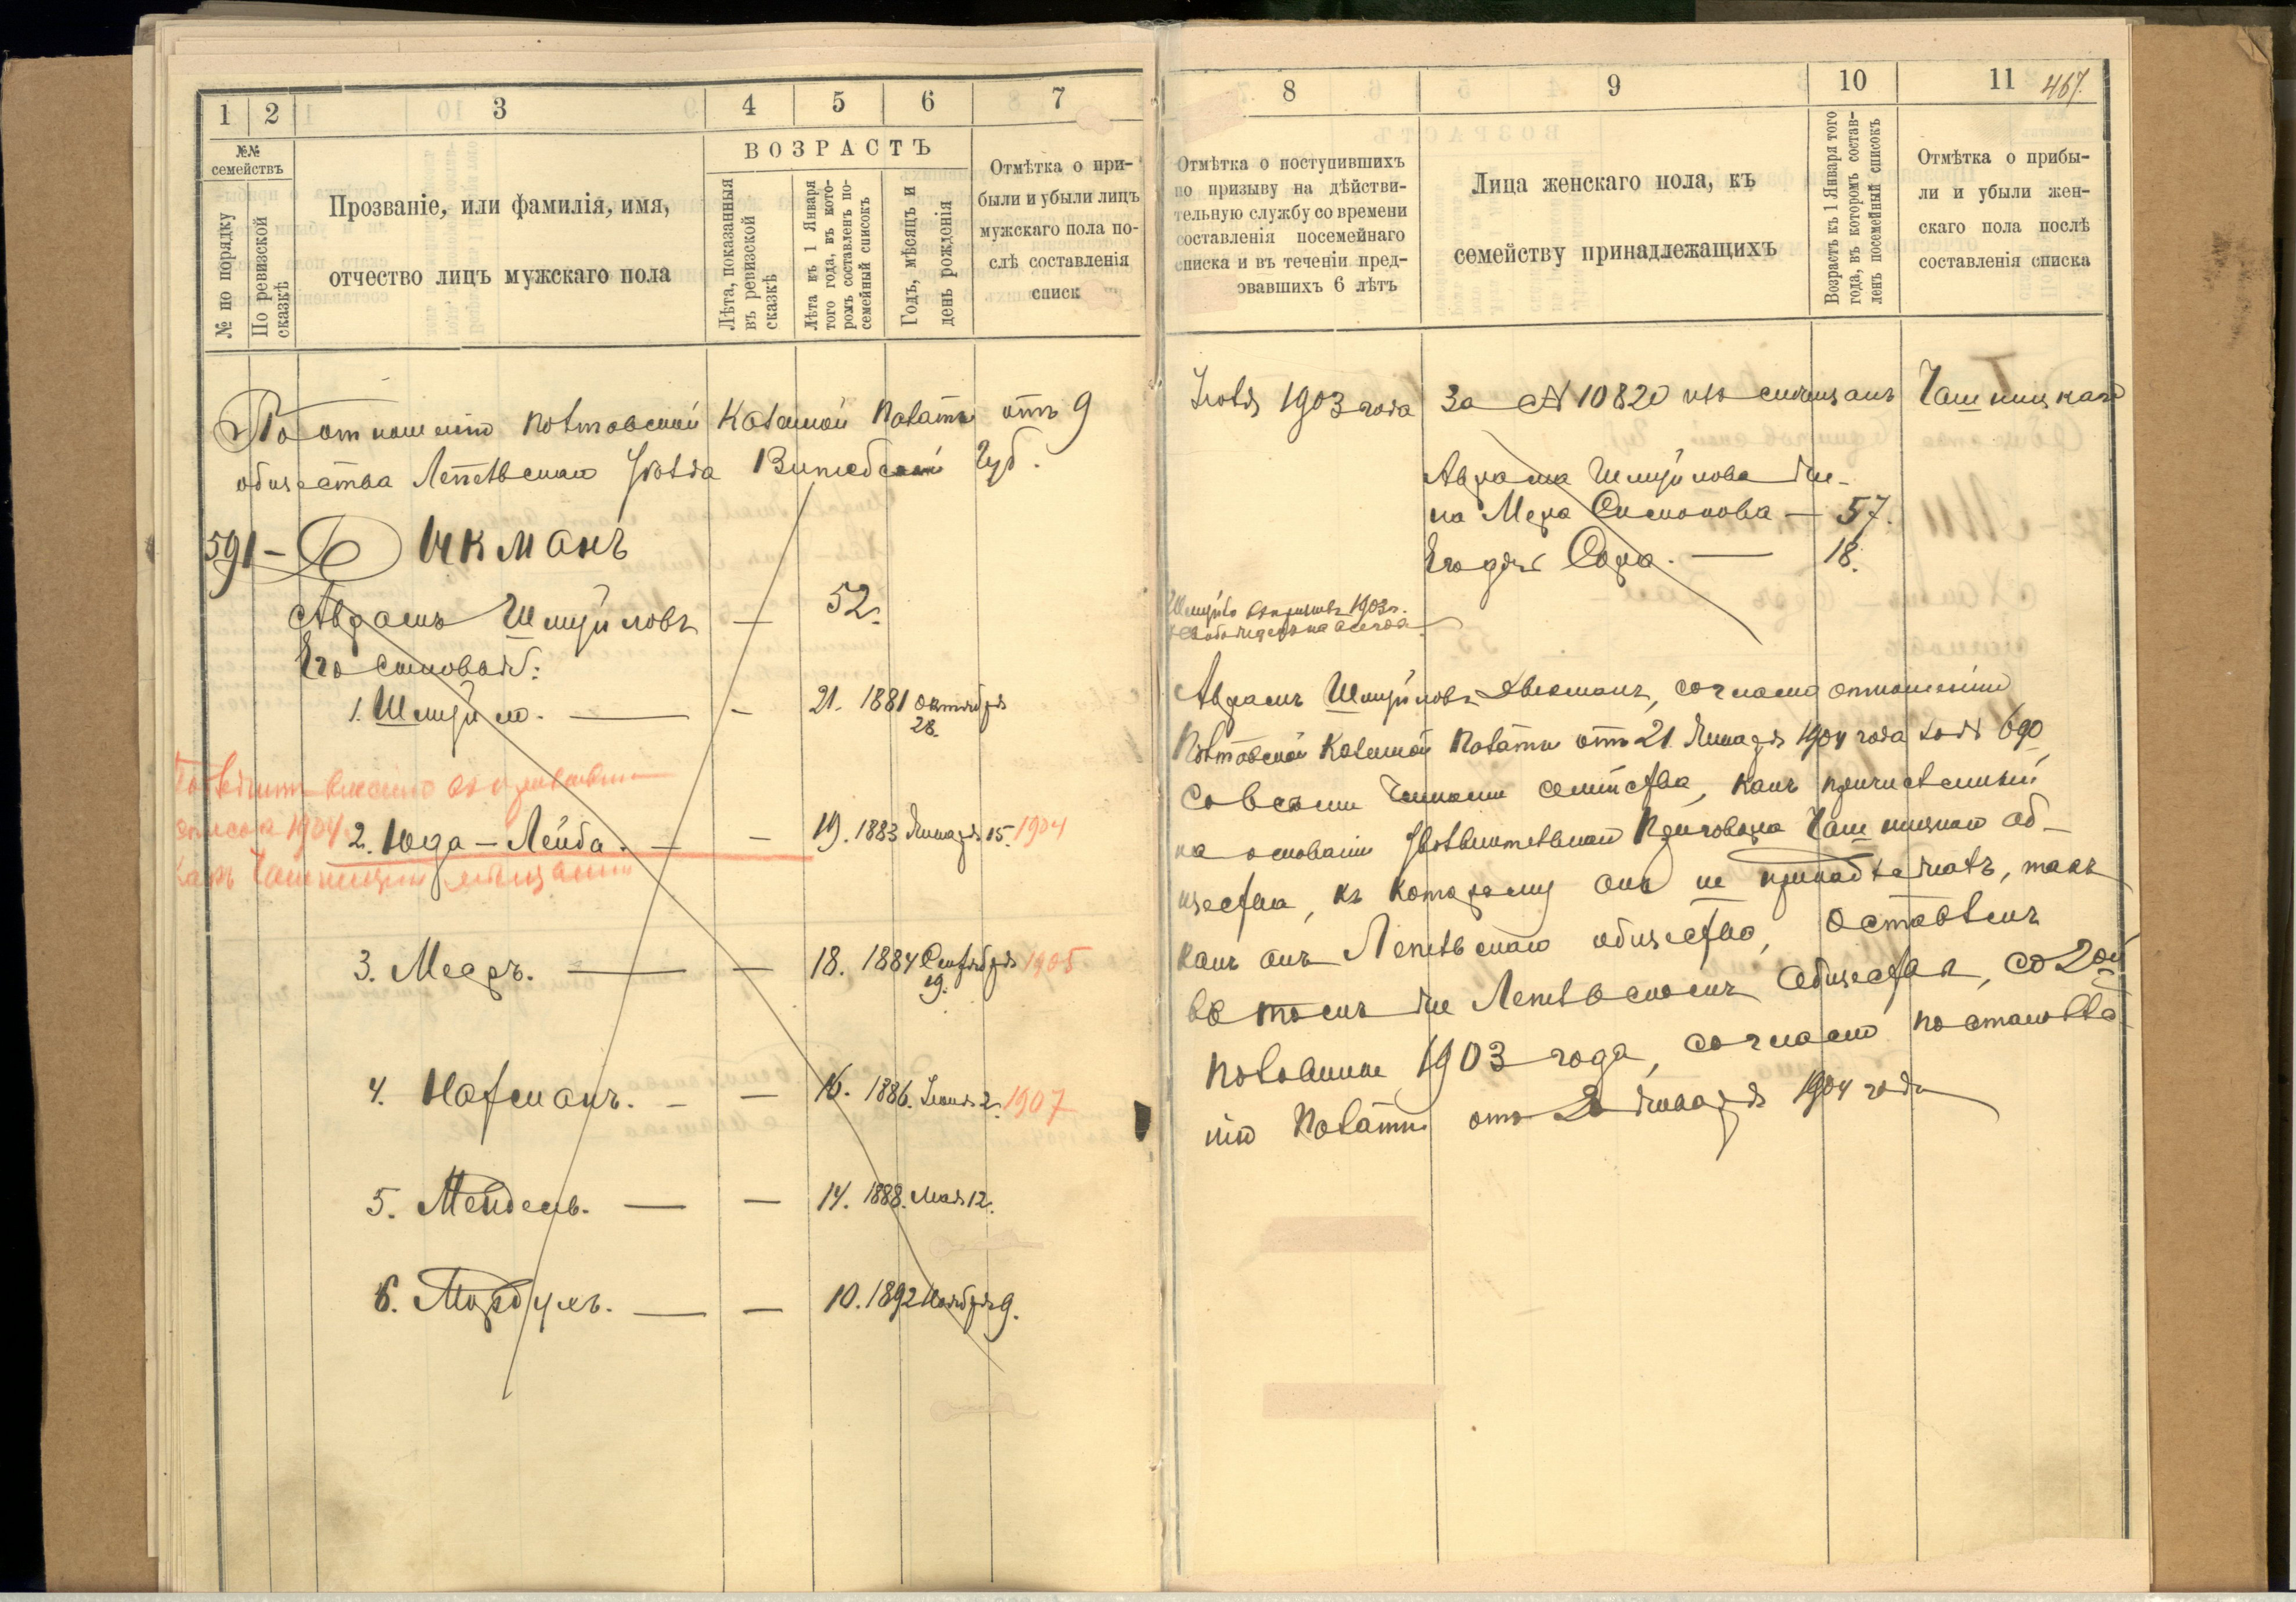 1
2
3
4
5
6
7
№№ семействъ
№ по порядку
По ревизской сказкѣ
Прозваніе, или фамилія, имя,
отчество лицъ мужскаго пола
ВОЗРАСТЪ
Лѣта, показанныя
въ ревизской
сказкѣ
Лѣта къ 1 Января
того года, въ кото-
ромъ составленъ по-
семейный списокъ
Годъ, мѣсяцъ и
день рожденія
Отмѣтка о при-
были и убыли лицъ
мужскаго пола по-
слѣ составленія
списк
По отношенію Полтавской Казенной Палаты отъ 9
общества Лепельскаго Уѣзда Витебской Губ.
591 –
Абрамъ Шмуйловъ — 52.
Его сыновья:
1. Шмуйло. — — 21. 1881 октября
28.
списка 1904
2. Юда-Лейба. — — 19. 1883 Января 15. 1904
Чашницкій мѣщанинъ
3. Мееръ. — — 18. 1884 Октября 1905
19.
4. Нафманъ. — — 16. 1886. Іюня 2. 1907
5. Мендель. — — 14. 1888. Мая 12.
6. Мордухъ. — — 10. 1892 Ноября 9.
8
9
10
11
467.
Отмѣтка о поступившихъ
по призыву на дѣйстви-
тельную службу со времени
составленія посемейнаго
списка и въ теченіи пред-
овавшихъ 6 лѣтъ
Лица женскаго пола, къ
семейству принадлежащихъ
Возрастъ къ 1 Января того
года, въ которомъ состав-
ленъ посемейный списокъ
Отмѣтка о прибы-
ли и убыли жен-
скаго пола послѣ
составленія списка
Іюля 1903 года за № 10820 Чашницкаго
Абрама Шмуйлова же-
на Мера — 57.
Его дочь Сора. — 18.
Шмуйло 1903 г.
Абрамъ Шмуйловъ согласно отношенію
Полтавской Казенной Палаты отъ 21 Января 1904 года за № 690
со всѣми членами семейства, какъ причисленный
на основаніи увольнительнаго Приговора Чашницкаго об-
щества, къ которому онъ не принадлежалъ, такъ
какъ онъ Лепельскаго общества, оставленъ
въ томъ же Лепельскомъ обществѣ, со 2ой
половины 1903 года, согласно постановле
нію Палаты отъ Января 1904 года